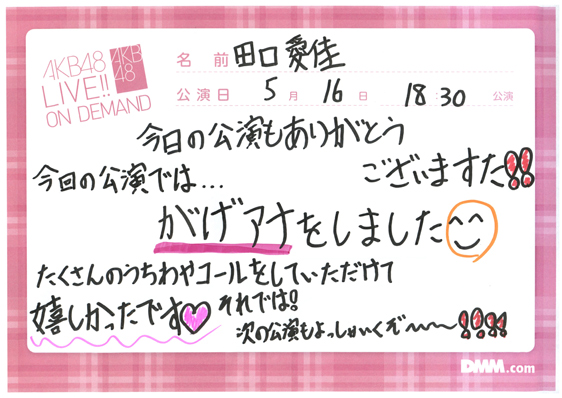 AKB48
LIVE!!
ON DEMAND
AKB
48
名前 田口 愛佳
公演日 5月 16日 18:30 公演
今日の公演もありがとう
ございますた!!
今回の公演では...
がげアナをしました
たくさんのうちわやコールをしていただけて
嬉しかったです
それでは!
次の公演もよっしゃいくぞ〜〜〜!!!!
DMM.com